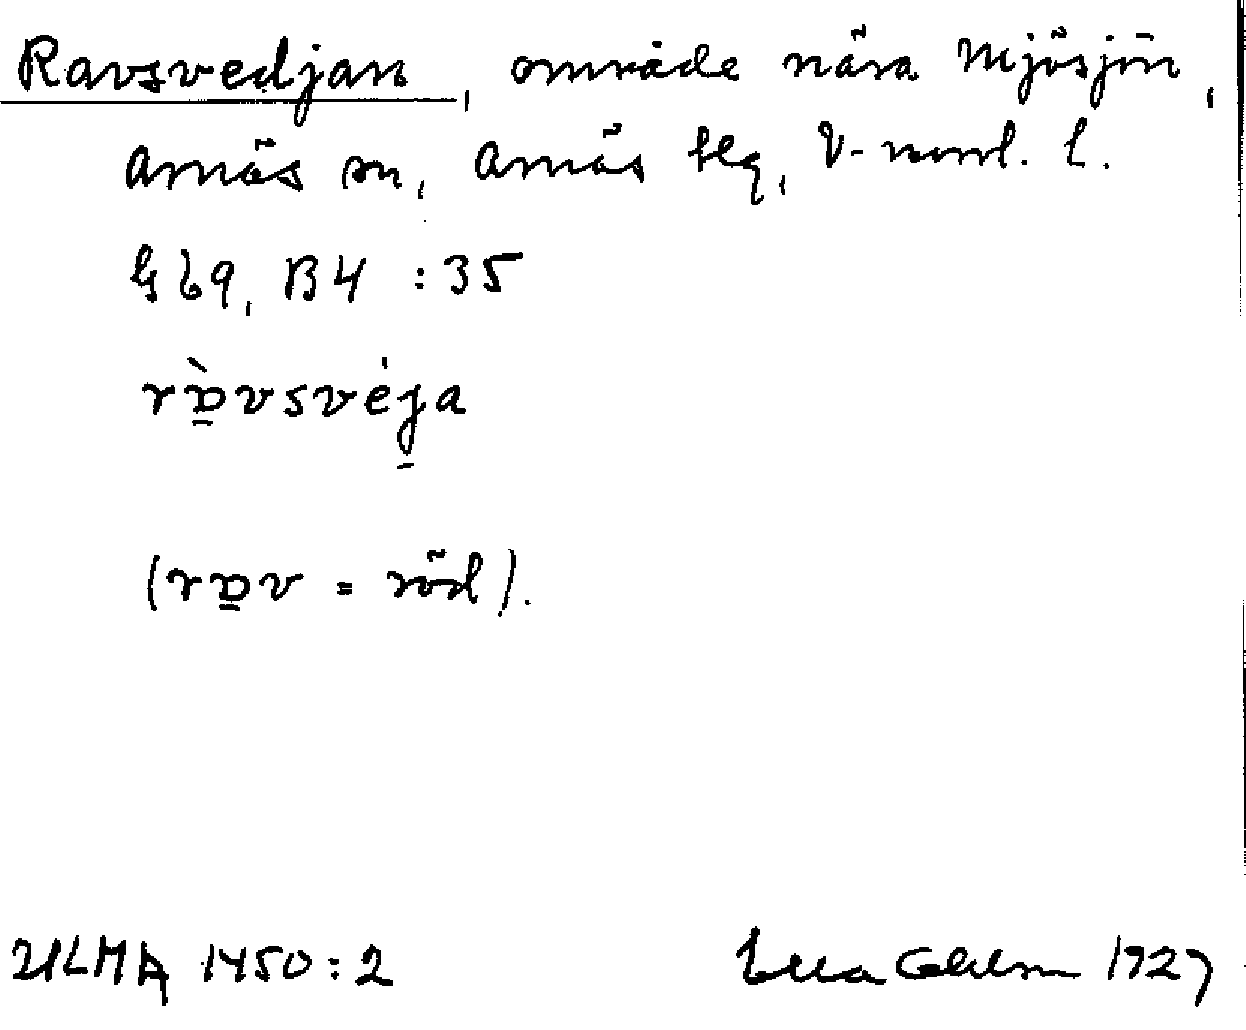 Ravsvedjan, område nära Mjösjön,
Arnäs sn, Arnäs tlg, V-norrl. l.
G 69, B4 :35
rɒ̱̀vsvėj̱a
(rɒ̱v = röd).
ULMA 1450:2 1927